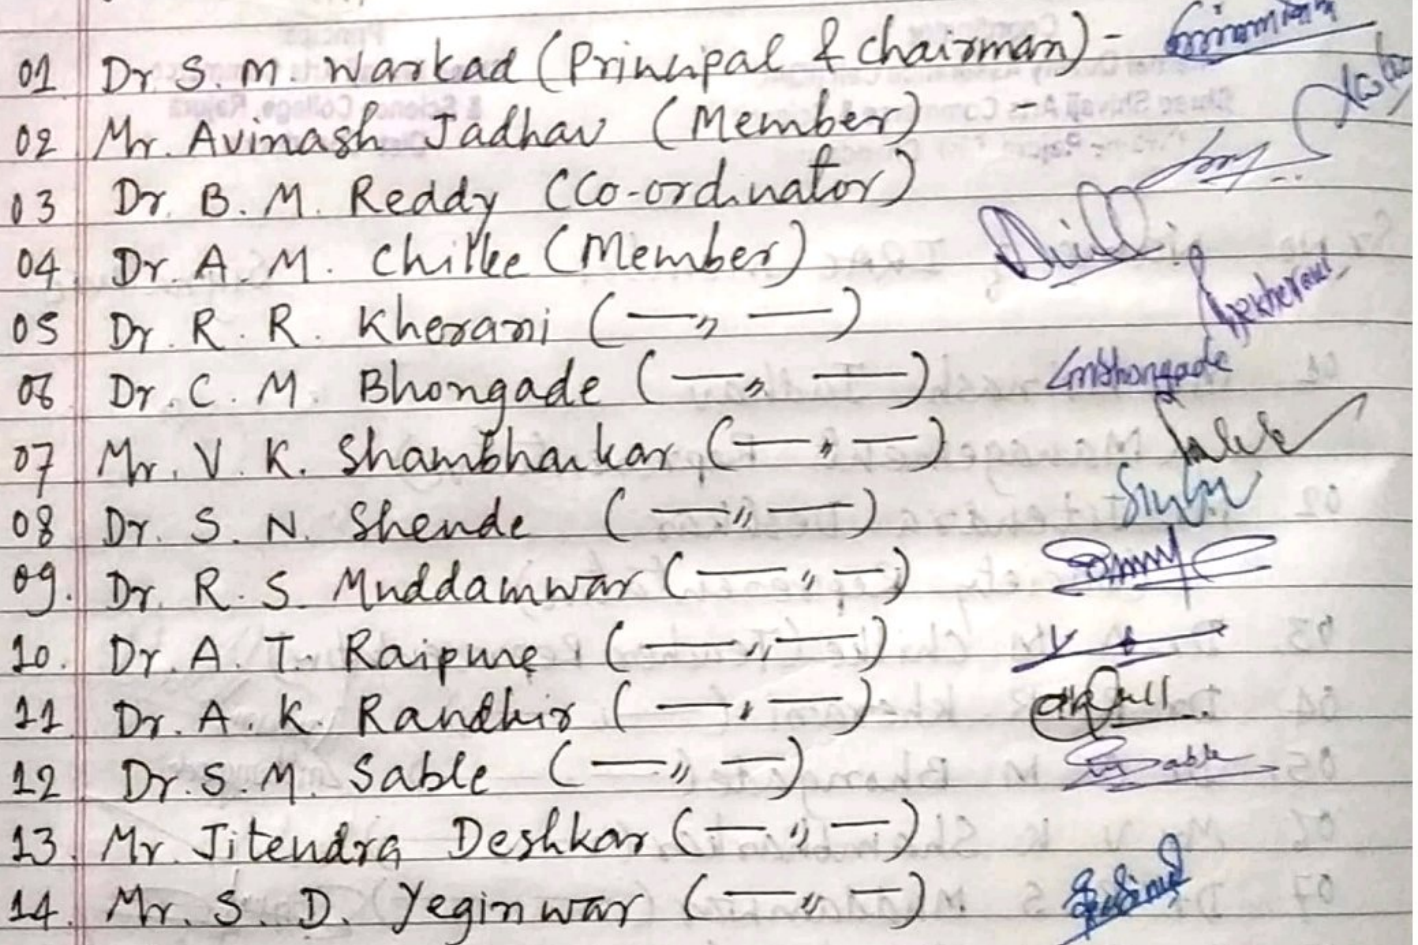 01 Dr S. M. Warkad (Principal & Chairman) -
02 Mr. Avinash Jadhav (Member) -
03 Dr. B. M. Reddy (Co-ordinator)
04 Dr. A. M. Chilke (Member)
05 Dr. R. R. Kherani ( — „ — )
06 Dr. C. M. Bhongade ( — „ — ) Cmbhongade
07 Mr. V. K. Shambharkar ( — „ — )
08 Dr. S. N. Shende ( — „ — )
09. Dr. R. S. Muddamwar ( — „ — )
10. Dr. A. T. Raipure ( — „ — )
11 Dr. A. K. Randhir ( — „ — )
12 Dr. S. M. Sable ( — „ — ) Sable
13. Mr. Jitendra Deshkar ( — „ — )
14. Mr. S. D. Yeginwar ( — „ — ).